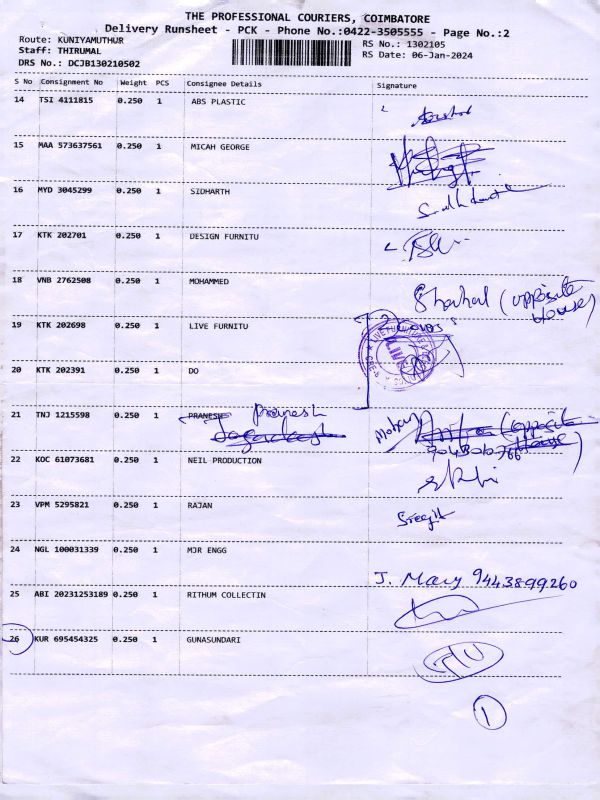 THE PROFESSIONAL COURIERS, COIMBATORE
Delivery Runsheet - PCK - Phone No.:0422-3505555 - Page No.:2
Route: KUNIYAMUTHUR
RS No.: 1302105
Staff: THIRUMAL
RS Date: 06-Jan-2024
DRS No.: DCJB130210502
S No Consignment No Weight PCS Consignee Details Signature
14 TSI 4111815 0.250 1 ABS PLASTIC
15 MAA 573637561 0.250 1 MICAH GEORGE
16 MYD 3045299 0.250 1 SIDHARTH
17 KTK 202701 0.250 1 DESIGN FURNITU
18 VNB 2762508 0.250 1 MOHAMMED
(opposite
House)
19 KTK 202698 0.250 1 LIVE FURNITU
LIVE
20 KTK 202391 0.250 1 DO
21 TNJ 1215598 0.250 1 PRANESH Pranesh
Mohan (opposite
House)
22 KOC 61073681 0.250 1 NEIL PRODUCTION
23 VPM 5295821 0.250 1 RAJAN Sreejit
24 NGL 100031339 0.250 1 MJR ENGG
J. Mary 9443899260
25 ABI 20231253189 0.250 1 RITHUM COLLECTIN
26 KUR 695454325 0.250 1 GUNASUNDARI
1